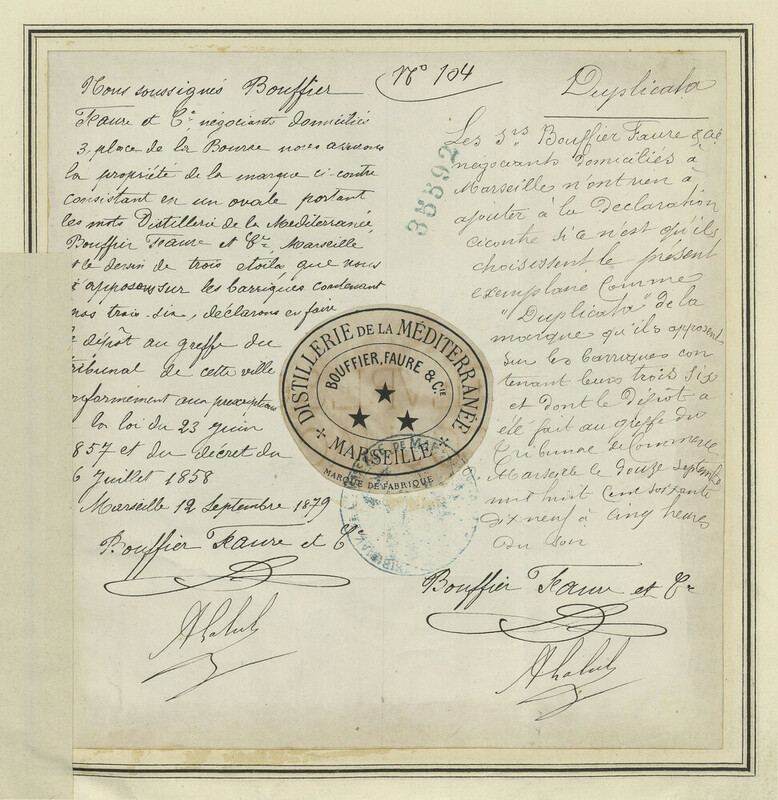 Nº 104
Nous soussignés Bouffier
Faure et Cie négociants domiciliés
3, place de la Bourse nous assurons
la propriété de la marque ci-contre
consistant en un ovale portant
les mots Distillerie de la Mediterranée,
Bouffier Faure et Cie, Marseille
et le dessin de trois etoiles, que nous
apposons sur les barriques contenant
nos trois-six, déclarons en faire
dépôt au greffe du
tribunal de cette ville
nformément aux prescriptions
la loi du 23 juin
857 et du décret du
6 Juillet 1858
Marseille 12 Septembre 1879
Bouffier Faure et Cie
DISTILLERIE DE LA MÉDITERRANÉE
BOUFFIER, FAURE & CIE
MARSEILLE
MARQUE DE FABRIQUE
35592
Duplicata
Les Srs Bouffier Faure & Cie
négociants domiciliés à
Marseille n'ont rien à
ajouter à la Declaration
cicontre si ce n'est qu'ils
choisissent le présent
exemplaire comme
"Duplicata" de la
marque qu'ils apposent
sur les barriques con
tenant leurs trois six
et dont le Dépôt a
été fait au greffe du
Tribunal de Commerce
Marseille le Douze Septembre
mil huit cent soixante
dix neuf à cinq heures
du soir
Bouffier Faure et Cie